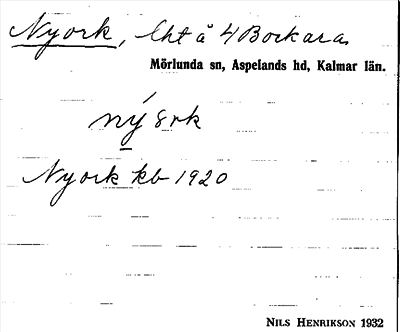 Nyork, lht å 4 Bockara
Mörlunda sn, Aspelands hd, Kalmar län.
nýørk
Nyork kb 1920
NILS HENRIKSON 1932